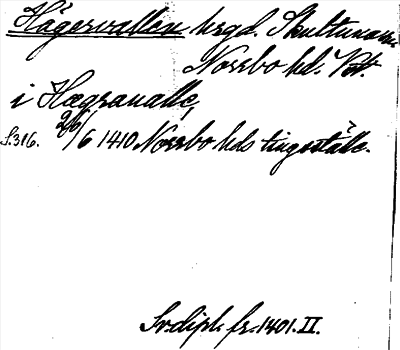 Hägervallen hrgd. Skultuna sn
Norrbo hd. Vstm.
i Hægraualle,
S. 316. 26/6 1410 Norrbo hds tingställe.
Sv. dipl. fr. 1401. II.